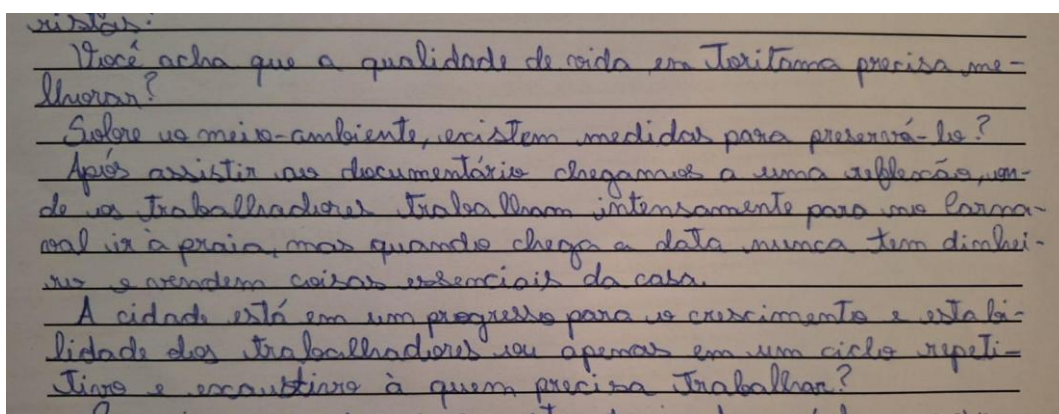 ristas.
Você acha que a qualidade de vida em Toritama precisa me-
lhorar?
Sobre o meio-ambiente, existem medidas para preservá-lo?
Após assistir ao documentário chegamos a uma reflexão, on-
de os trabalhadores trabalham intensamente para no Carna-
val ir à praia, mas quando chega a data nunca tem dinhei-
ro e vendem coisas essenciais da casa.
A cidade está em um progresso para o crescimento e estabi-
lidade dos trabalhadores ou apenas em um ciclo repeti-
tivo e exaustivo à quem precisa trabalhar?